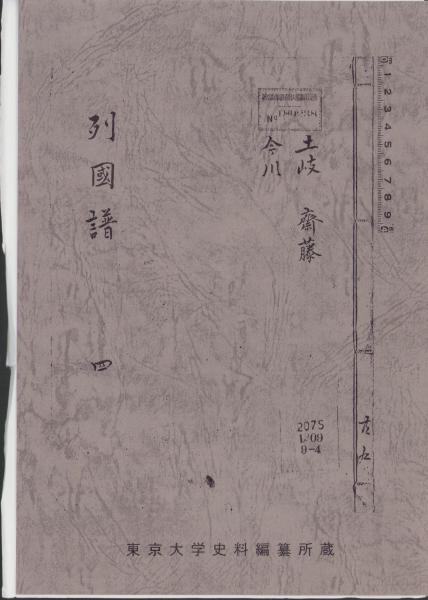 土岐 齋藤
今川
列國譜 四
2075
1/09
9-4
1 2 3 4 5 6 7 8 9
東京大学史料編纂所蔵